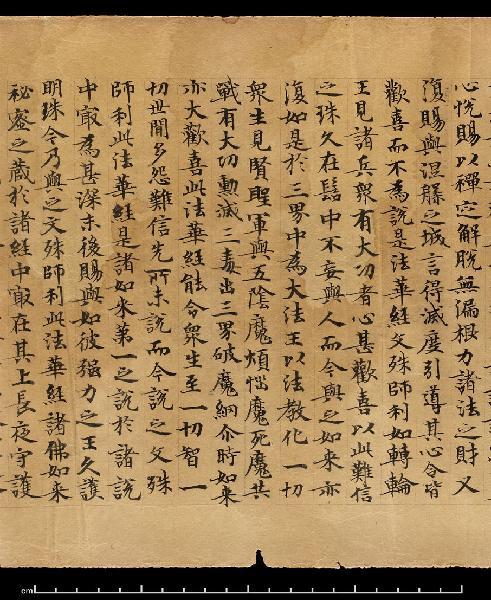 心悅賜以禪定解脫無漏根力諸法之財又
復賜與涅槃之城言得滅度引導其心令皆
歡喜而不為說是法華經文殊師利如轉輪
王見諸兵衆有大功者心甚歡喜以此難信
之珠久在髻中不妄與人而今與之如來亦
復如是於三界中為大法王以法教化一切
衆生見賢聖軍與五陰魔煩惱魔死魔共
戰有大功勳滅三毒出三界破魔網尒時如來
亦大歡喜此法華經能令衆生至一切智一
切世間多怨難信先所未說而今說之文殊
師利此法華經是諸如來第一之說於諸說
中冣為甚深末後賜與如彼强力之王久護
明珠今乃與之文殊師利此法華經諸佛如來
祕密之藏於諸經中冣在其上長夜守護
cm